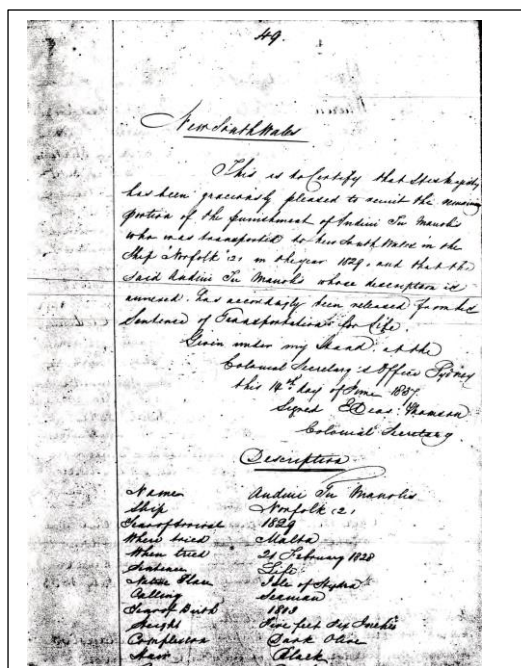 49.
New South Wales
This is to Certify that His Majesty
has been graciously pleased to remit the remaining
portion of the punishment of Andini Tu Manolis
who was transported to New South Wales in the
Ship Norfolk (2) in the year 1829, and that the
said Andini Tu Manolis whose description is
annexed. has accordingly been released from his
Sentence of Transportation for Life.
Given under my Hand at the
Colonial Secretary's Office Sydney
this 14th day of June 1837.
Signed E Deas Thomson
Colonial Secretary
Description
Name Andini Tu Manolis
Ship Norfolk (2)
Year of Arrival 1829
Where tried Malta
When tried 21 February 1828
Sentence Life
Native Place Isle of Hydra
Calling Seaman
Year of Birth
Height Five feet Six Inches
Complexion Dark Olive
Hair Black